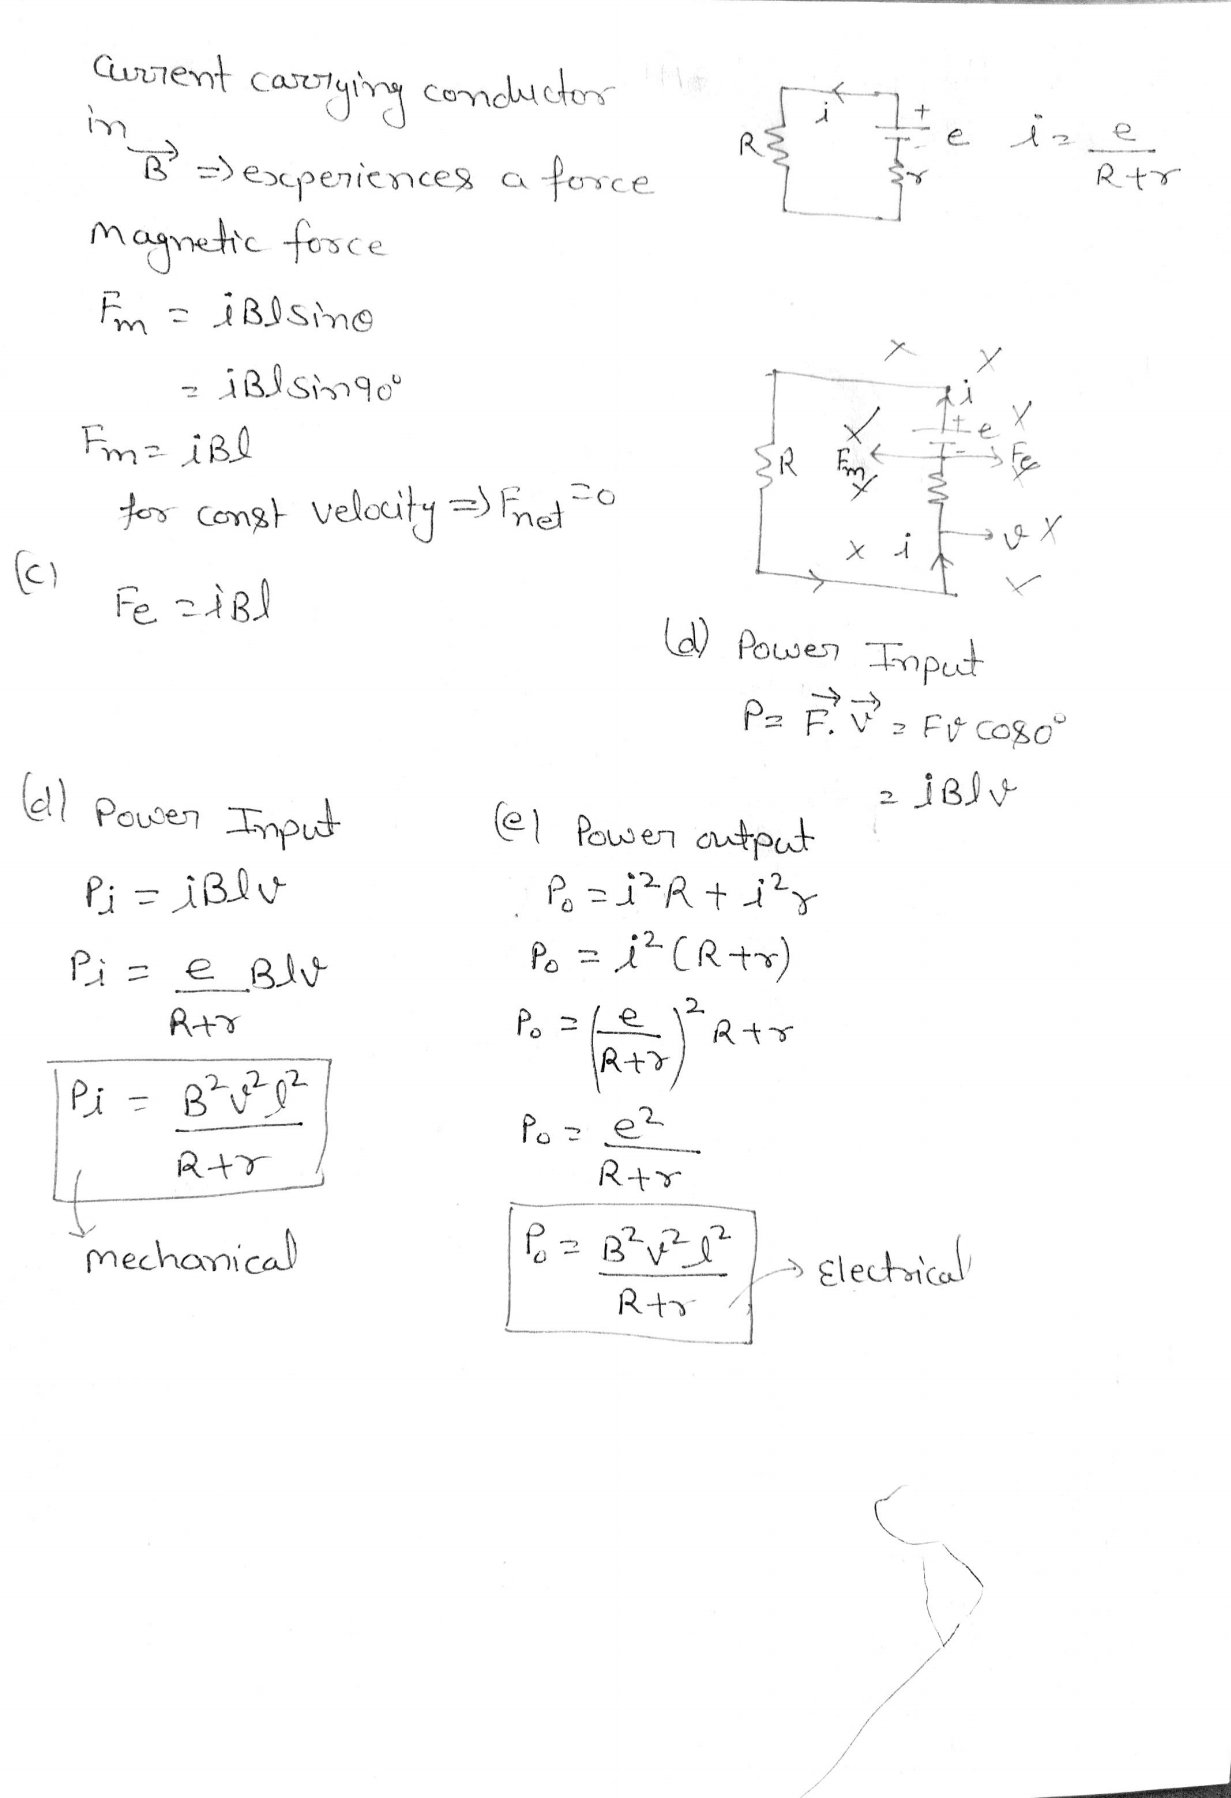 Current carrying conductor
in
B⃗ => experiences a force
magnetic force
Fm = iBlsinθ
= iBlsin90°
Fm = iBl
for const velocity => Fnet = 0
(c)
Fe = iBl
R i + - e r i = e/(R+r)
x x
i
x + e x
R Fm - Fe
x x
v x
x i
x
(d) Power Input
P = F⃗.V⃗ = Fv cos0°
= iBlv
(d) Power Input
Pi = iBlv
Pi = e/(R+r) Blv
Pi = B²v²l²/(R+r)
mechanical
(e) Power output
Po = i²R + i²r
Po = i²(R+r)
Po = (e/(R+r))² R+r
Po = e²/(R+r)
Po = B²v²l²/(R+r) → Electrical